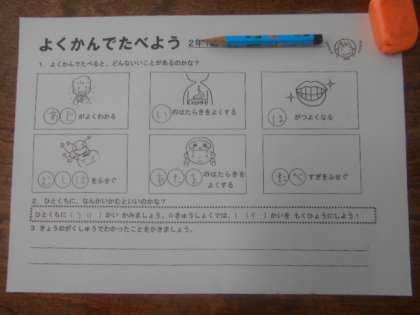 よくかんでたべよう 2年
1. よくかんでたべると、どんないいことがあるのかな?
あじがよくわかる
いのはたらきをよくする
はがつよくなる
むしばをふせぐ
あたまのはたらきを
よくする
たべすぎをふせぐ
2. ひとくちに、なんかいかむといいのかな?
ひとくちに( )かい かみましょう。 きゅうしょくでは、( )かいを もくひょうにしよう!
3. きょうのがくしゅうでわかったことをかきましょう。